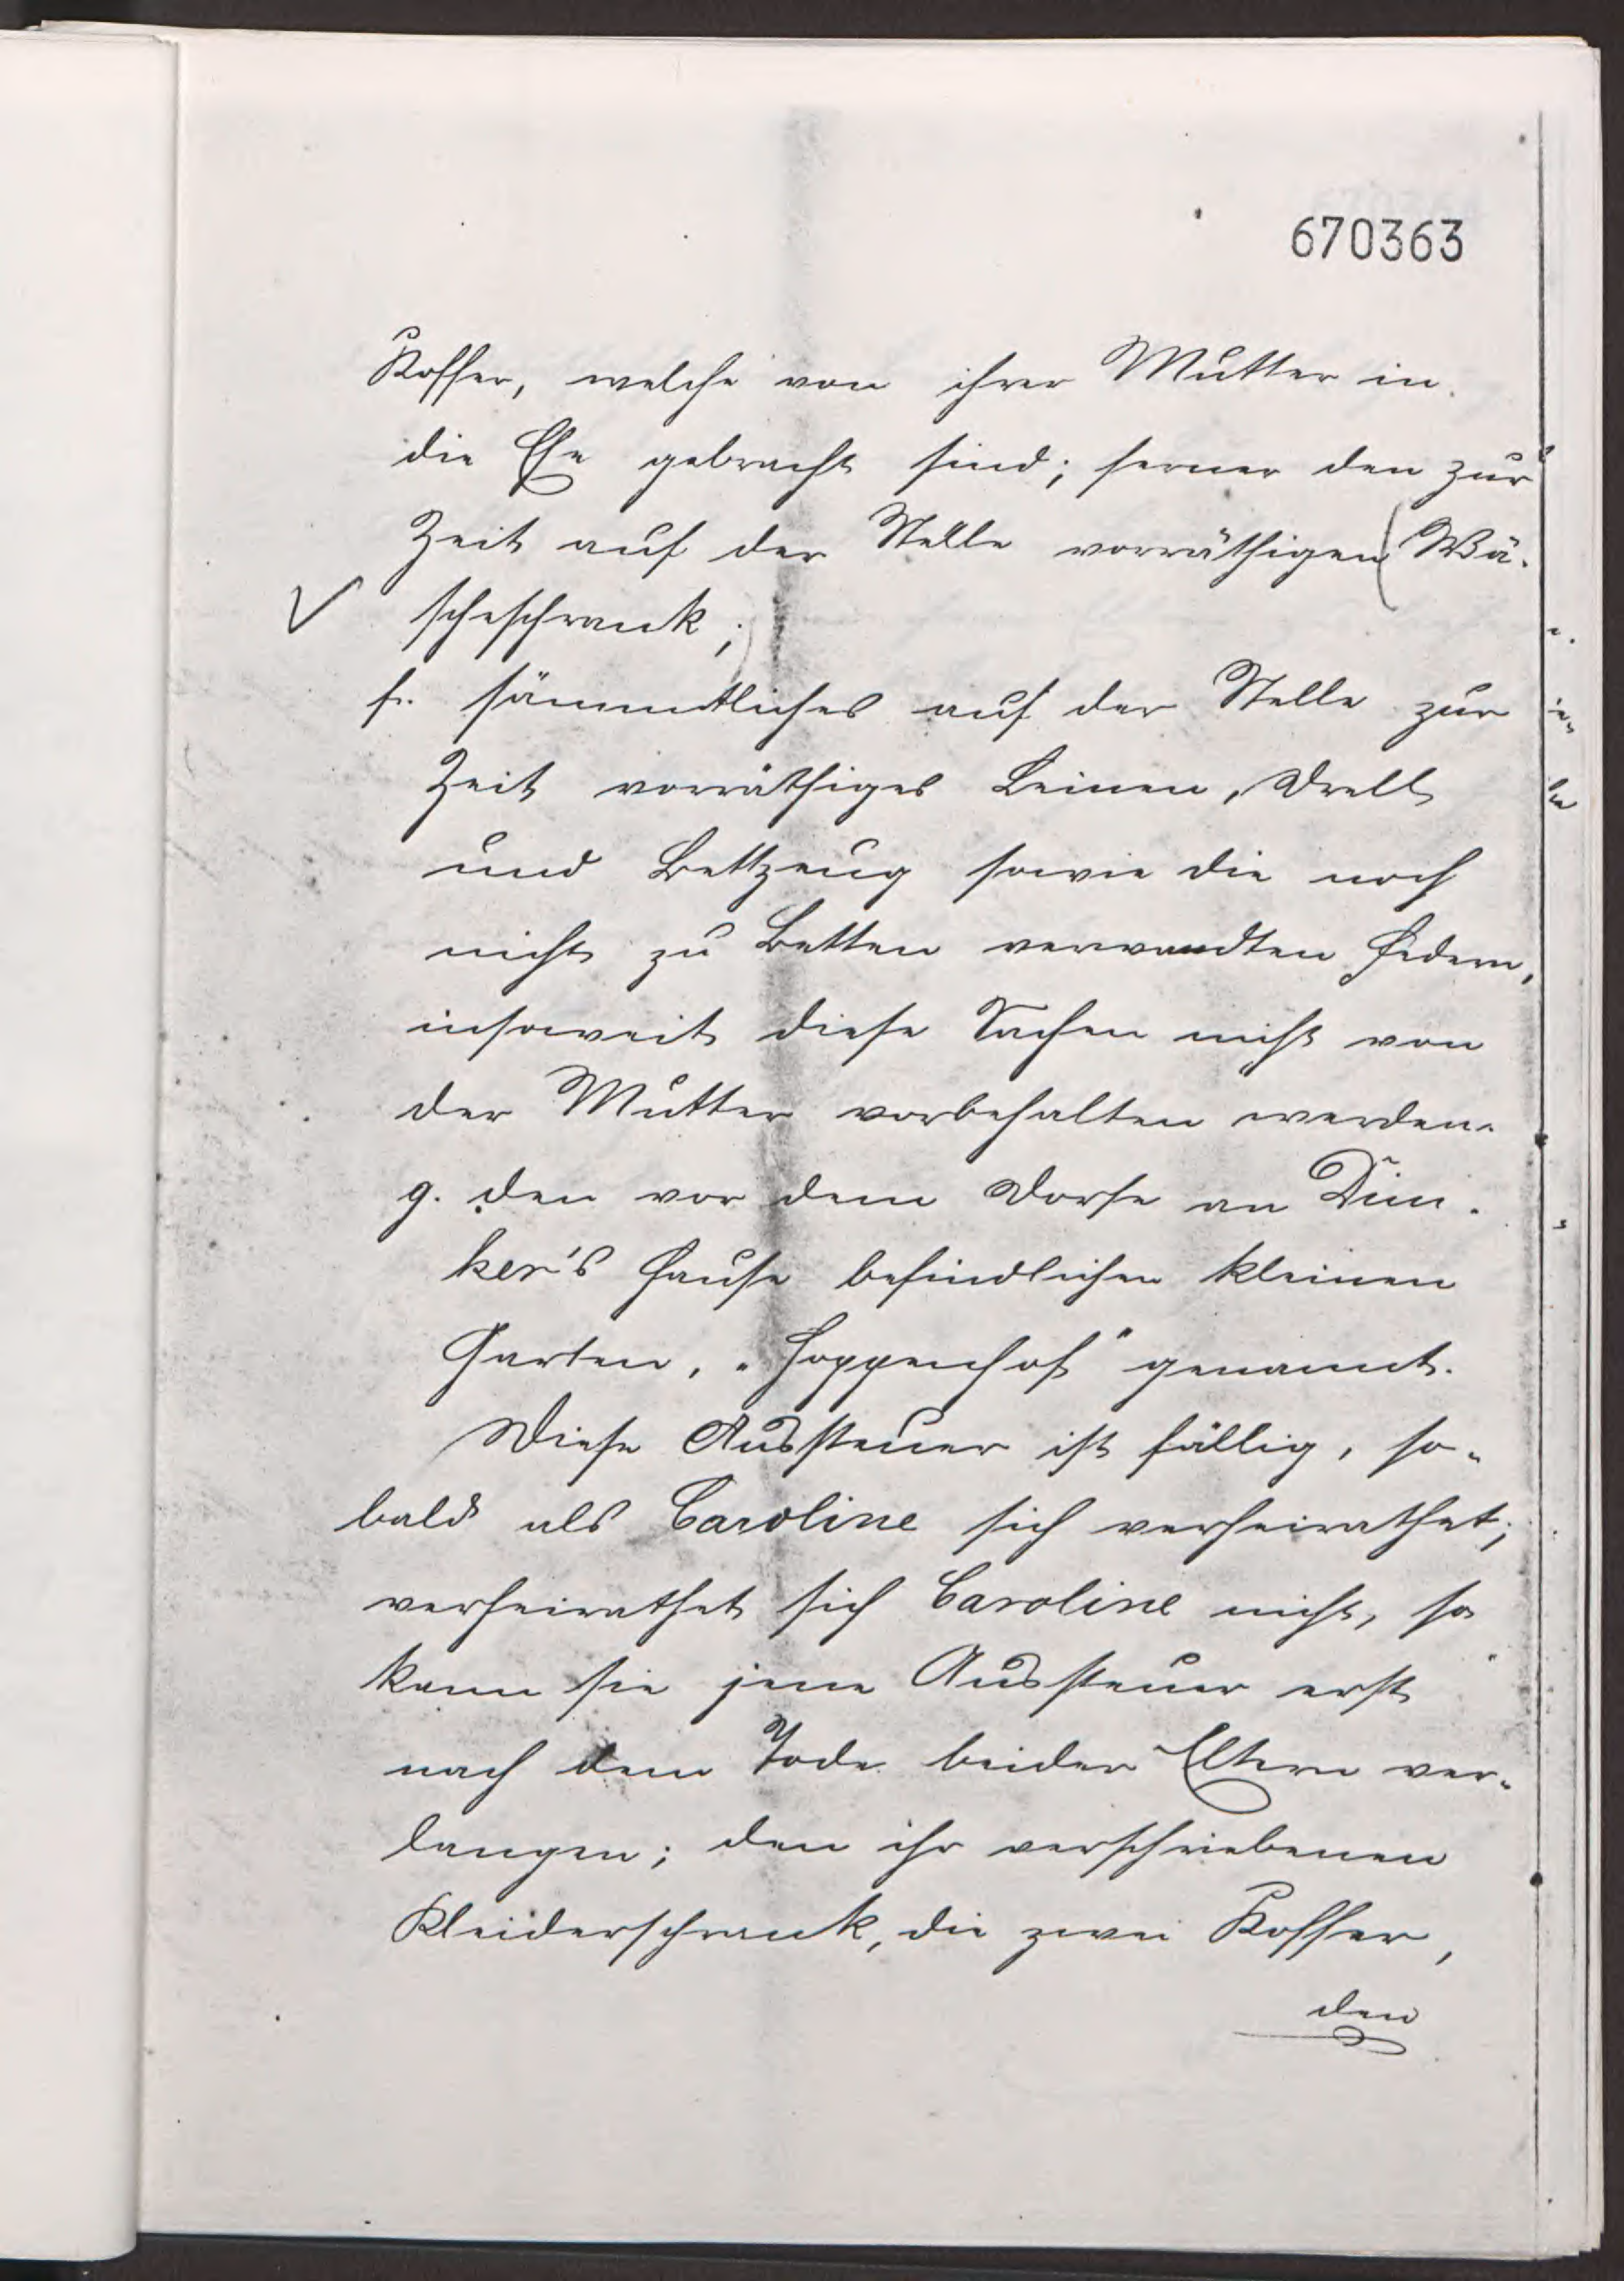 670363
Koffer, welche von ihrer Mutter in
die Ehe gebracht sind; ferner den zur
Zeit auf der Stelle vorräthigen (Wä-
scheschrank;)
f. sämmtliches auf der Stelle zur
Zeit vorräthiges Leinen, Drell
und Bettzeug sowie die noch
nicht zu Betten verwandten Federn,
insoweit diese Sachen nicht von
der Mutter vorbehalten werden.
g. den vor dem Dorfe an
ker's Hause befindlichen kleinen
Garten, „Hoppenhof" genannt.
Diese Aussteuer ist fällig, so-
bald als Caroline sich verheirathet;
verheirathet sich Caroline nicht, so
kann sie jene Aussteuer erst
nach dem Tode beider Eltern ver-
langen; den ihr verschriebenen
Kleiderschrank, die zwei Koffer,
den